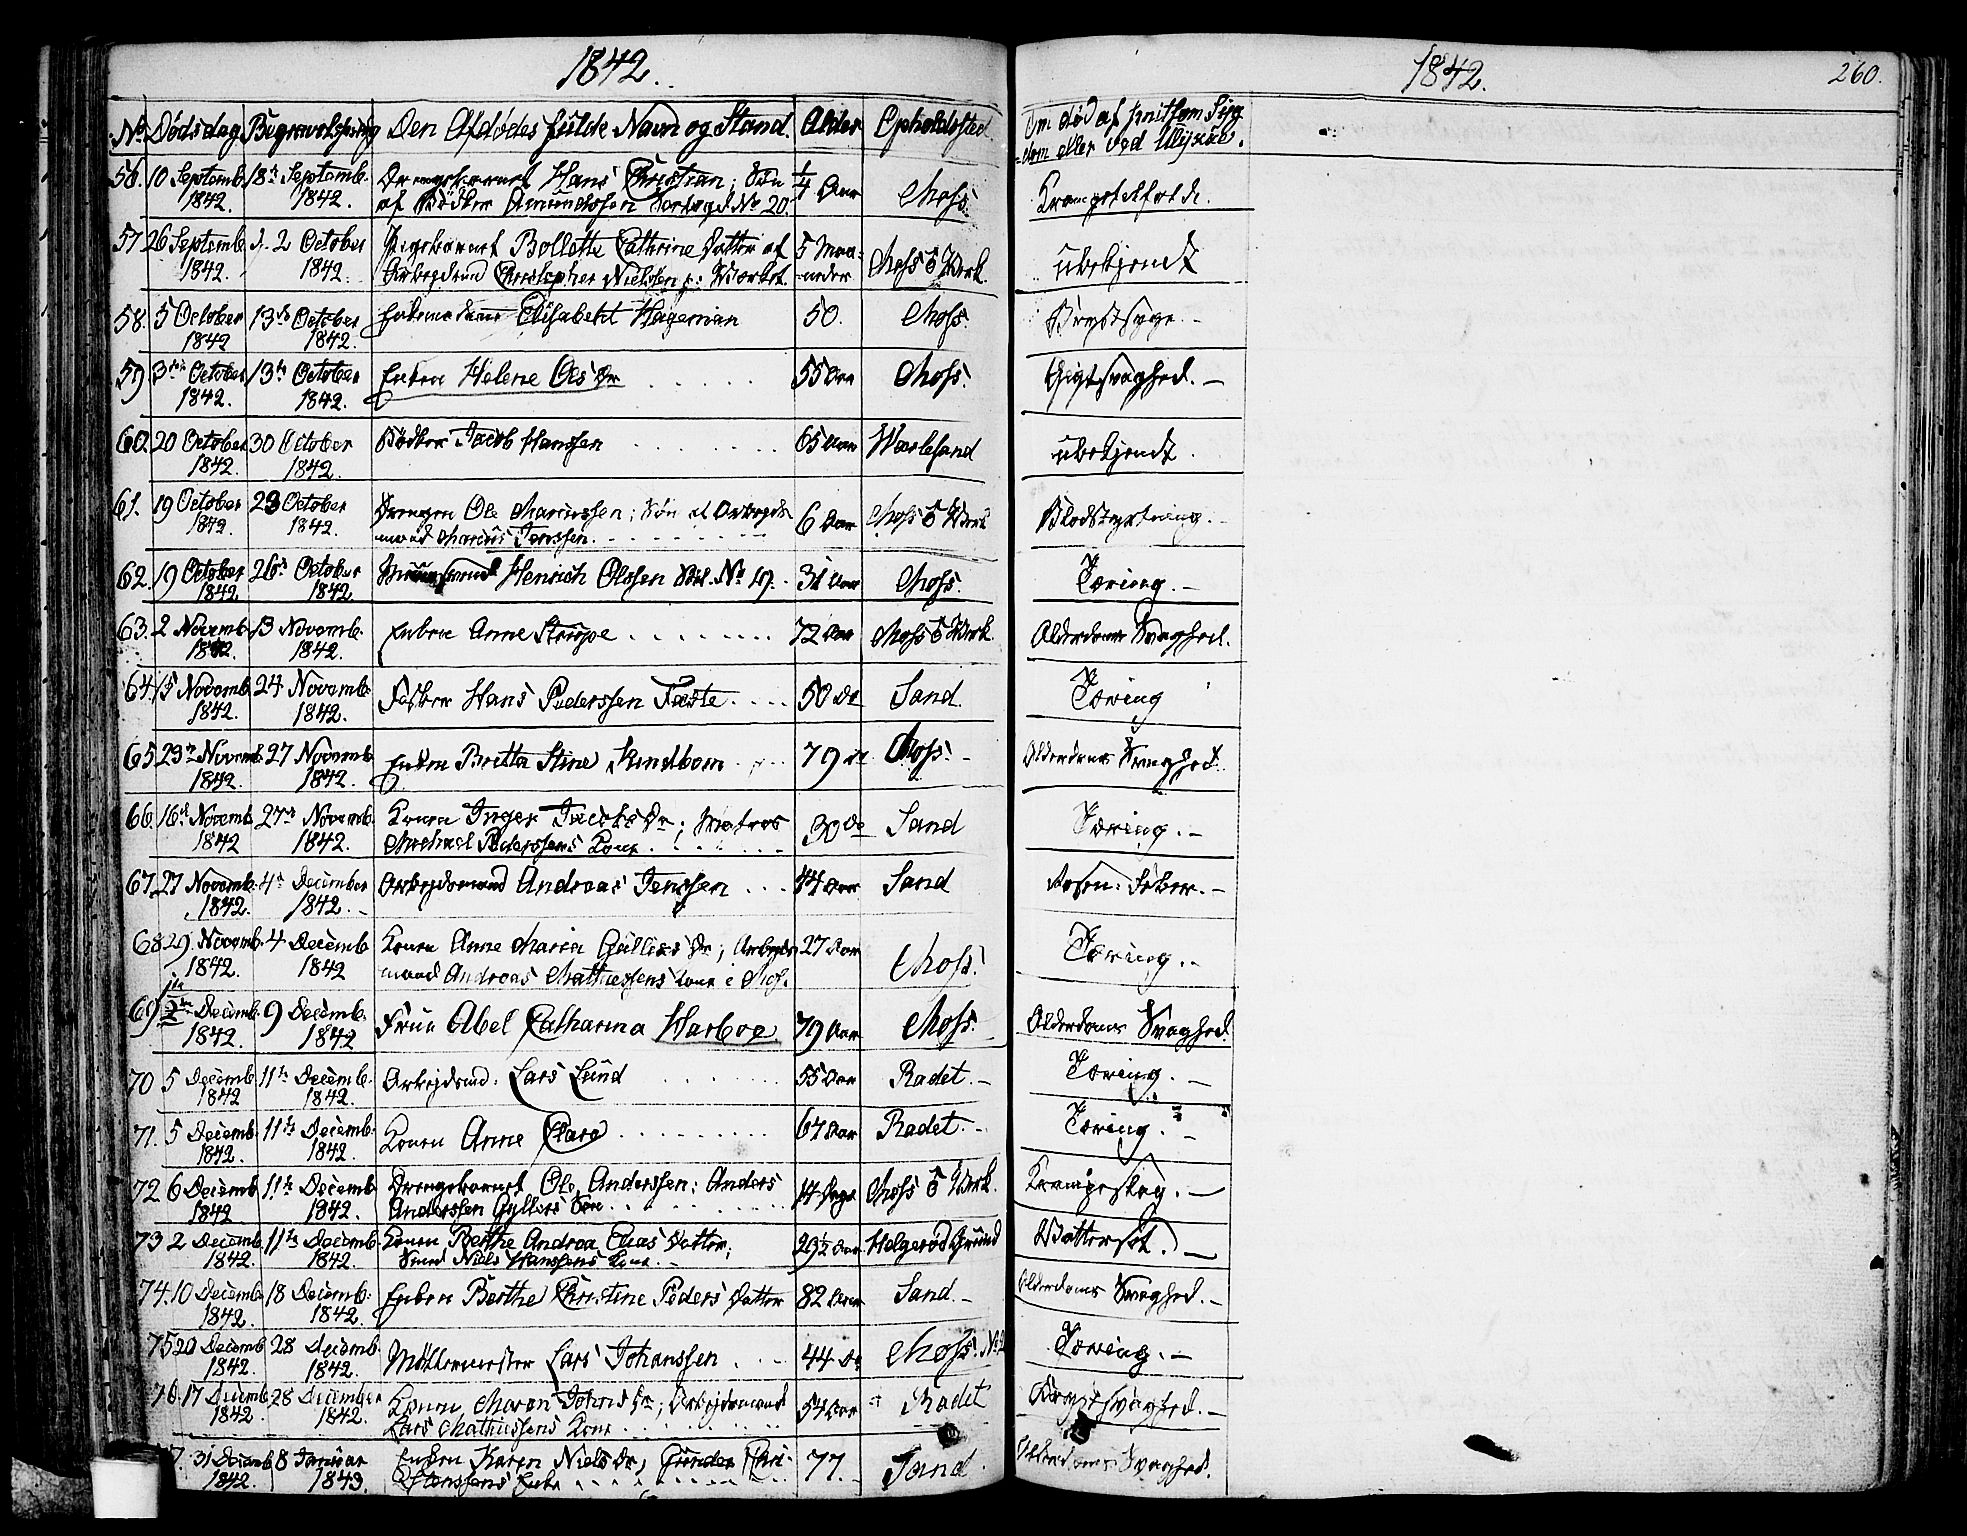 1842.
No. Dødsdag Begravelsesdag Den Afdødes fulde Navn og Stand. Alder Opholdssted
56. 10 Septemb. 18de Septemb. Drengebarnet Hans Christian; Søn 1/4 Aar Moss.
1842. 1842. af Bødker Amundssen No 20.
57. 26 Septemb. 2 October Pigebarnet Bollette Cathrine Datter af 5 Maa- Moss Værk.
1842. 1842. Arbejdsmd Christopher Nielssen p: Værket. neder
58. 5 October 13de October Enkemadame Elisabeht Hagerman 50. Moss.
1842 1842.
59. 3die October 13de October Enken Helene Ols Dr 55 Aar Moss.
1842. 1842.
60. 20 October 30 October Bødker Jacob Hanssen 65 Aar Værlesand
1842. 1842.
61. 19 October 23 October Drengen Ole Mariussen; Søn af Arbejds- 6 Aar Moss Værk
1842. 1842. mand Marius Jenssen.
62. 19 October 26de October Henrich Olssen No 19. 31 Aar Moss.
1842 1842.
63. 2 Novemb. 13 Novemb. Enken Anne Strøpe 72 Aar Moss Værk.
1842. 1842.
64. 15 Novemb. 24 Novemb. Fisker Hans Pederssen Faste 50 Do Sand.
1842. 1842.
65. 23de Novemb. 27 Novemb. Enken Britta Stine Sundbom 79 Do Moss.
1842. 1842.
66. 16de Novemb. 27de Novemb. Konen Inger Jacobs Dr; Matros 30 Do Sand
1842 1842. Michael Pederssens Kone.
67. 27 Novemb. 4de December Arbejdsmand Andreas Jenssen 44 Aar Sand
1842. 1842.
68. 29. Novemb. 4 Decemb Konen Anne Maria Gulliks Dr; Arbejds- 27 Aar Moss.
1842. 1842 mand Andreas Mathiessens Kone i Mos.
69. 2den Decemb. 9 Decemb. Frue Abel Catharina Harboe. 79 Aar Moss.
1842. 1842
70 5 Decemb 11te Decemb. Arbejdsmd. Lars Lund 55 Aar Radet.
1842 1842.
71. 5 Decemb. 11te Decemb. Konen Anne Clare 67 Aar Radet.
1842. 1842.
72 6 Decemb 11te Decemb Drengebarnet Ole Anderssen; Anders 14 Dage Moss Værk.
1842 1842. Anderssen Gyllers Søn
73 2 Decemb. 11te Decemb. Konen Berthe Andrea Elias Datter; 29½ Aar Helgerød Grund
1842. 1842. Smed Niels Hanssens Kone.
74. 10 Decemb. 18 Decemb. Enken Berthe Christine Peders Datter 82 Aar Sand.
1842. 1842.
75 20 Decemb. 28 Decemb. Møllermester Lars Johanssen 44 Do Moss.
1842. 1842.
76. 17 Decemb. 28 December Konen Maren Johns Dr; Arbejdsmand 54 Aar Radet
1842. 1842. Lars Mathiessens Kone
31 Decemb. 8 Januar Enken Karen Niels Dr; Gunder Chri- 77. Sand.
1842. 1843. stenssens Enke
1842. 260.
Om død af smitsom Syg-
dom eller ved Ulykke.
Krampetilfælde.
ubekjendt
Brystsyge.
Gigtsvaghed.
ubekjendt.
Blodstyrtning.
Tæring.
Alderdoms Svaghed.
Tæring
Alderdoms Svaghed.
Tæring.
Rosen: Feber.
Tæring.
Alderdoms Svaghed.
Tæring.
Tæring.
Krampeslag.
Vattersot.
Alderdoms Svaghed.
Tæring.
Brystsvaghed.
Alderdoms Svaghed.